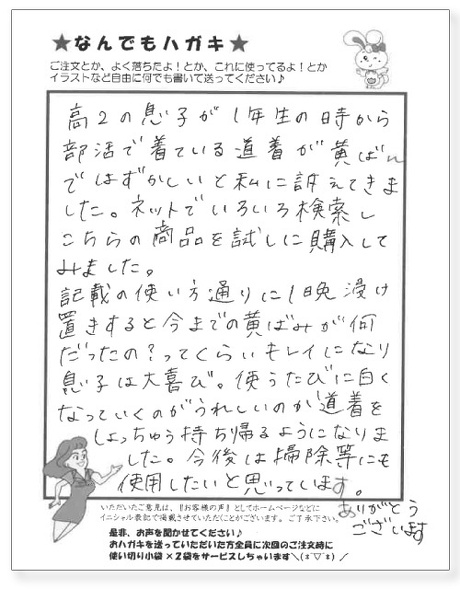 ★なんでもハガキ★
ご注文とか、よく落ちたよ！とか、これに使ってるよ！とか
イラストなど自由に何でも書いて送ってください♪
高2の息子が1年生の時から
部活で着ている道着が黄ばん
ではずかしいと私に訴えてきま
した。ネットでいろいろ検索し
こちらの商品を試しに購入して
みました。
記載の使い方通りに1晩浸け
置きすると今までの黄ばみが何
だったの？ってくらいキレイになり
息子は大喜び。使うたびに白く
なっていくのがうれしいのか道着を
しょっちゅう持ち帰るようになりま
した。今後は掃除等にも
使用したいと思っています。
ありがとう
ございます
いただいたご意見は、『お客様の声』としてホームページなどに
イニシャル表記で掲載させていただくことがございます。ご了承下さい。
是非、お声を聞かせてください♪
おハガキを送っていただいた方全員に次回のご注文時に
使い切り小袋×2袋をサービスしちゃいます＼(*￣▽￣*)／